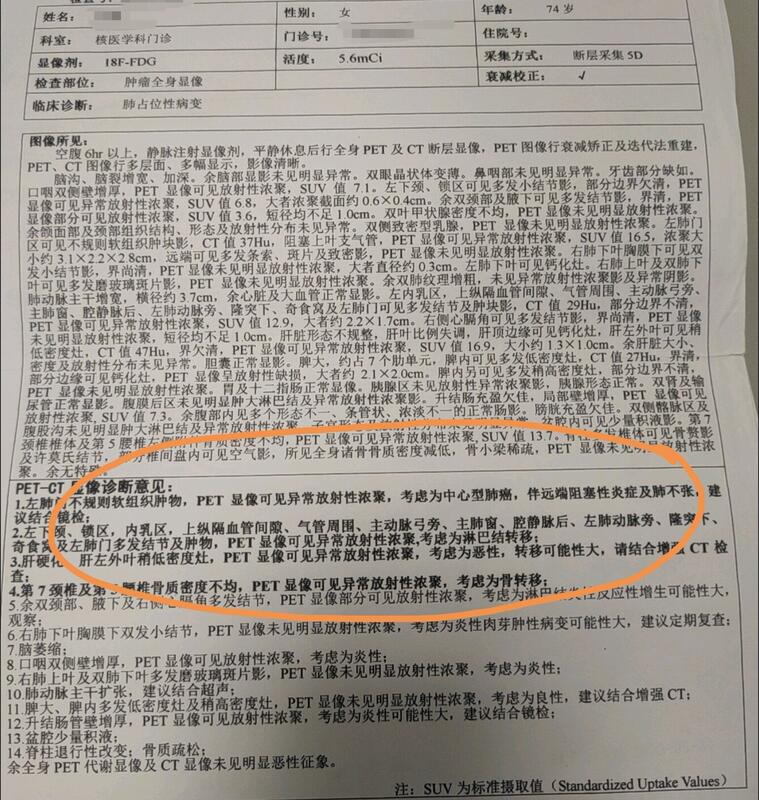 姓名：
性别： 女
年龄： 74 岁
科室： 核医学科门诊
门诊号：
住院号：
显像剂： 18F-FDG
活度： 5.6mCi
采集方式： 断层采集 5D
检查部位： 肿瘤全身显像
衰减校正： √
临床诊断： 肺占位性病变
图像所见：
空腹 6hr 以上，静脉注射显像剂，平静休息后行全身 PET 及 CT 断层显像，PET 图像行衰减矫正及迭代法重建，
PET、CT 图像行多层面、多幅显示，影像清晰。
脑沟、脑裂增宽、加深。余脑部显影未见明显异常。双眼晶状体变薄。鼻咽部未见明显异常。牙齿部分缺如。
口咽双侧壁增厚，PET 显像可见放射性浓聚，SUV 值 7.1。左下颈、锁区可见多发小结节影，部分边界欠清，PET
显像可见异常放射性浓聚，SUV 值 6.8，大者浓聚截面约 0.6×0.4cm。余双颈部及腋下可见多发结节影，界清，PET
显像部分可见放射性浓聚，SUV 值 3.6，短径均不足 1.0cm。双叶甲状腺密度不均，PET 显像未见明显放射性浓聚。
余颌面部及颈部组织结构、形态及放射性分布未见异常。双侧致密型乳腺，PET 显像未见明显放射性浓聚。左肺门
区可见不规则软组织肿块影，CT 值 37Hu，阻塞上叶支气管，PET 显像可见异常放射性浓聚，SUV 值 16.5，浓聚大
小约 3.1×2.2×2.8cm，远端可见多发条索、斑片及致密影，PET 显像未见明显放射性浓聚。右肺下叶胸膜下可见双
发小结节影，界尚清，PET 显像未见明显放射性浓聚，大者直径约 0.3cm。左肺下叶可见钙化灶。右肺上叶及双肺下
叶可见多发磨玻璃斑片影，PET 显像未见明显放射性浓聚。余双肺纹理增粗，未见异常放射性浓聚影及异常阴影。
肺动脉主干增宽，横径约 3.7cm，余心脏及大血管正常显影。左内乳区，上纵隔血管间隙、气管周围、主动脉弓旁、
主肺窗、腔静脉后、左肺动脉旁、隆突下、奇食窝及左肺门可见多发结节及肿块影，CT 值 29Hu，部分边界不清，
PET 显像可见异常放射性浓聚，SUV 值 12.9，大者约 2.2×1.7cm。右侧心膈角可见多发结节影，界尚清，PET 显像
未见明显放射性浓聚，短径均不足 1.0cm。肝脏形态不规整，肝叶比例失调，肝顶边缘可见钙化灶，肝左外叶可见稍
低密度灶，CT 值 47Hu，界欠清，PET 显像可见异常放射性浓聚，SUV 值 16.9，大小约 1.3×1.0cm。余肝脏大小、
密度及放射性分布未见异常。胆囊正常显影。脾大，约占 7 个肋单元，脾内可见多发低密度灶，CT 值 27Hu，界清，
部分边缘可见钙化灶，PET 显像呈放射性缺损，大者约 2.1×2.0cm。脾内另可见多发稍高密度灶，部分边界不清，
PET 显像未见明显放射性浓聚。胃及十二指肠正常显像。胰腺区未见放射性异常浓聚影，胰腺形态正常。双肾及输
尿管正常显影。腹膜后区未见明显肿大淋巴结及异常放射性浓聚。升结肠充盈欠佳，局部壁增厚，PET 显像可见
放射性浓聚，SUV 值 7.3。余腹部内见多个形态不一、条管状、浓淡不一的正常肠影。膀胱充盈欠佳。双侧髂脉区及
腹股沟未见明显肿大淋巴结及异常放射性浓聚。子宫形态及放射性分布未见明显异常。盆腔内可见少量积液影。第 7
颈椎椎体及第 5 腰椎左侧附件骨质密度不均，PET 显像可见异常放射性浓聚，SUV 值 13.7。脊柱多发椎体可见骨赘影
及许莫氏结节，部分椎间盘内可见空气影，所见全身诸骨骨质密度减低，骨小梁稀疏，PET 显像未见明显放射性浓
聚。余无特殊。
PET-CT 显像诊断意见：
1.左肺门不规则软组织肿物，PET 显像可见异常放射性浓聚，考虑为中心型肺癌，伴远端阻塞性炎症及肺不张，建
议结合镜检；
2.左下颈、锁区，内乳区，上纵隔血管间隙、气管周围、主动脉弓旁、主肺窗、腔静脉后、左肺动脉旁、隆突下、
奇食窝及左肺门多发结节及肿物，PET 显像可见异常放射性浓聚,考虑为淋巴结转移；
3.肝硬化，肝左外叶稍低密度灶，PET 显像可见异常放射性浓聚，考虑为恶性，转移可能性大，请结合增强 CT 检
查；
4.第 7 颈椎及第 5 腰椎骨质密度不均，PET 显像可见异常放射性浓聚，考虑为骨转移；
5.余双颈部、腋下及右侧心膈角多发结节，PET 显像部分可见放射性浓聚，考虑为淋巴结炎性反应性增生可能性大，
观察；
6.右肺下叶胸膜下双发小结节，PET 显像未见明显放射性浓聚，考虑为炎性肉芽肿性病变可能性大，建议定期复查；
7.脑萎缩；
8.口咽双侧壁增厚，PET 显像可见放射性浓聚，考虑为炎性；
9.右肺上叶及双肺下叶多发磨玻璃斑片影，PET 显像未见明显放射性浓聚，考虑为炎性；
10.肺动脉主干扩张，建议结合超声；
11.脾大、脾内多发低密度灶及稍高密度灶，PET 显像未见明显放射性浓聚，考虑为良性，建议结合增强 CT；
12.升结肠管壁增厚，PET 显像可见放射性浓聚，考虑为炎性可能性大，建议结合镜检；
13.盆腔少量积液；
14.脊柱退行性改变；骨质疏松；
余全身 PET 代谢显像及 CT 显像未见明显恶性征象。
注：SUV 为标准摄取值（Standardized Uptake Values）